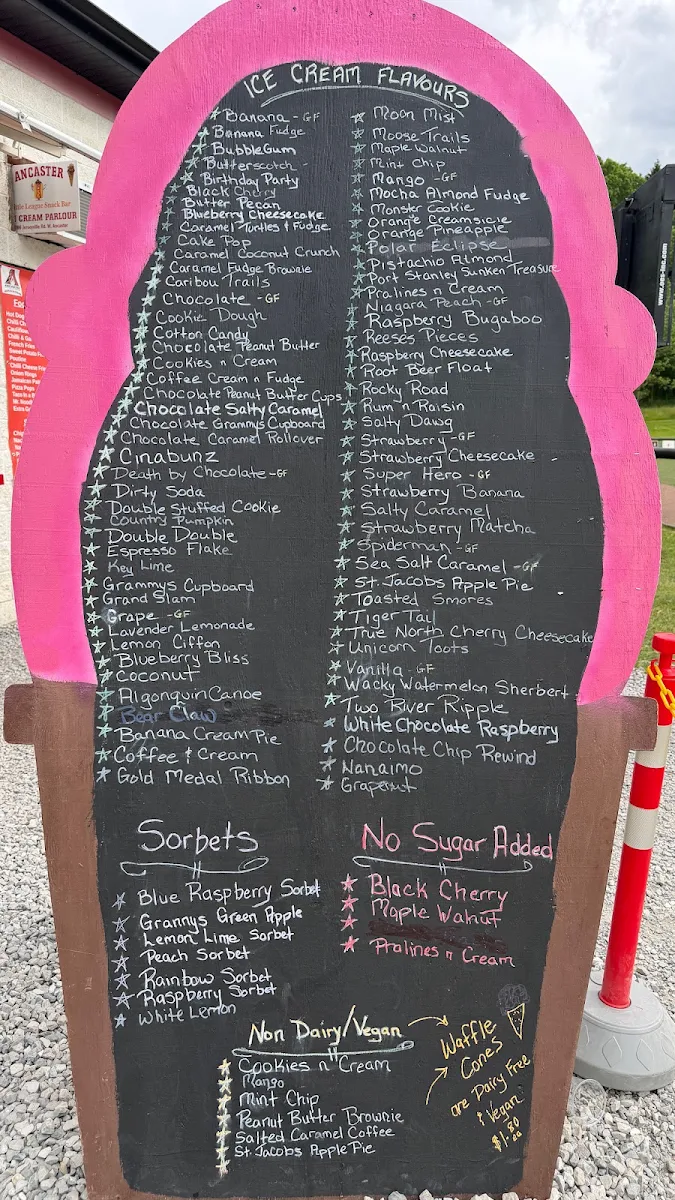 ICE CREAM FLAVOURS
Banana - GF
Banana Fudge
BubbleGum
Butterscotch -
Birthday Party
Black Cherry
Butter Pecan
Blueberry Cheesecake
Caramel Turtles & Fudge
Cake Pop
Caramel Coconut Crunch
Caramel Fudge Brownie
Caribou Trails
Chocolate - GF
Cookie Dough
Cotton Candy
Chocolate Peanut Butter
Cookies n Cream
Coffee Cream n Fudge
Chocolate Peanut Butter Cups
Chocolate Salty Caramel
Chocolate Grammys Cupboard
Chocolate Caramel Rollover
Cinabunz
Death by Chocolate - GF
Dirty Soda
Double Stuffed Cookie
Country Pumpkin
Double Double
Espresso Flake
Key Lime
Grammys Cupboard
Grand Slam
Grape - GF
Lavender Lemonade
Lemon Ciffon
Blueberry Bliss
Coconut
Algonquin Canoe
Bear Claw
Banana Cream Pie
Coffee & Cream
Gold Medal Ribbon
Moon Mist
Moose Trails
Maple Walnut
Mint Chip
Mango - GF
Mocha Almond Fudge
Monster Cookie
Orange Creamsicle
Orange Pineapple
Polar Eclipse
Pistachio Almond
Port Stanley Sunken Treasure
Pralines n Cream
Niagara Peach - GF
Raspberry Bugaboo
Reeses Pieces
Raspberry Cheesecake
Root Beer Float
Rocky Road
Rum n Raisin
Salty Dawg
Strawberry - GF
Strawberry Cheesecake
Super Hero - GF
Strawberry Banana
Salty Caramel
Strawberry Matcha
Spiderman - GF
Sea Salt Caramel - GF
St. Jacobs Apple Pie
Toasted Smores
Tiger Tail
True North Cherry Cheesecake
Unicorn Toots
Vanilla - GF
Wacky Watermelon Sherbert
Two River Ripple
White Chocolate Raspberry
Chocolate Chip Rewind
Nanaimo
Grapenut
Sorbets
Blue Raspberry Sorbet
Grannys Green Apple
Lemon Lime Sorbet
Peach Sorbet
Rainbow Sorbet
Raspberry Sorbet
White Lemon
No Sugar Added
Black Cherry
Maple Walnut
Pralines n Cream
Non Dairy/Vegan
Cookies n Cream
Mango
Mint Chip
Peanut Butter Brownie
Salted Caramel Coffee
St. Jacobs Apple Pie
Waffle
Cones
are Dairy Free
& Vegan
$1.80
ea
ANCASTER
Little League Snack Bar
CREAM PARLOUR